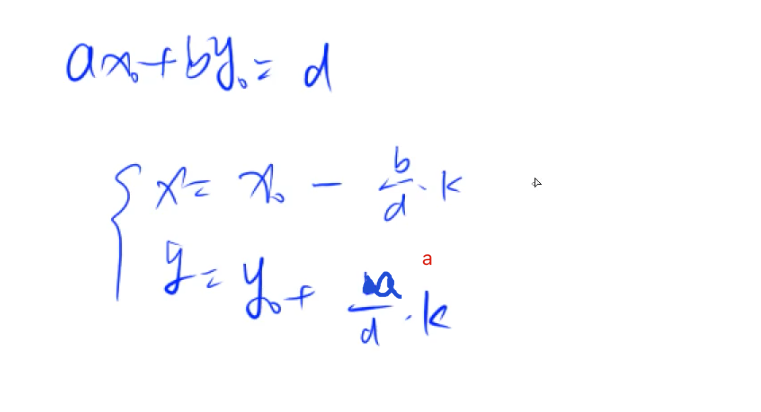 ax₀+by₀= d
x = x₀ - b/d · k
a
y = y₀ + a/d · k